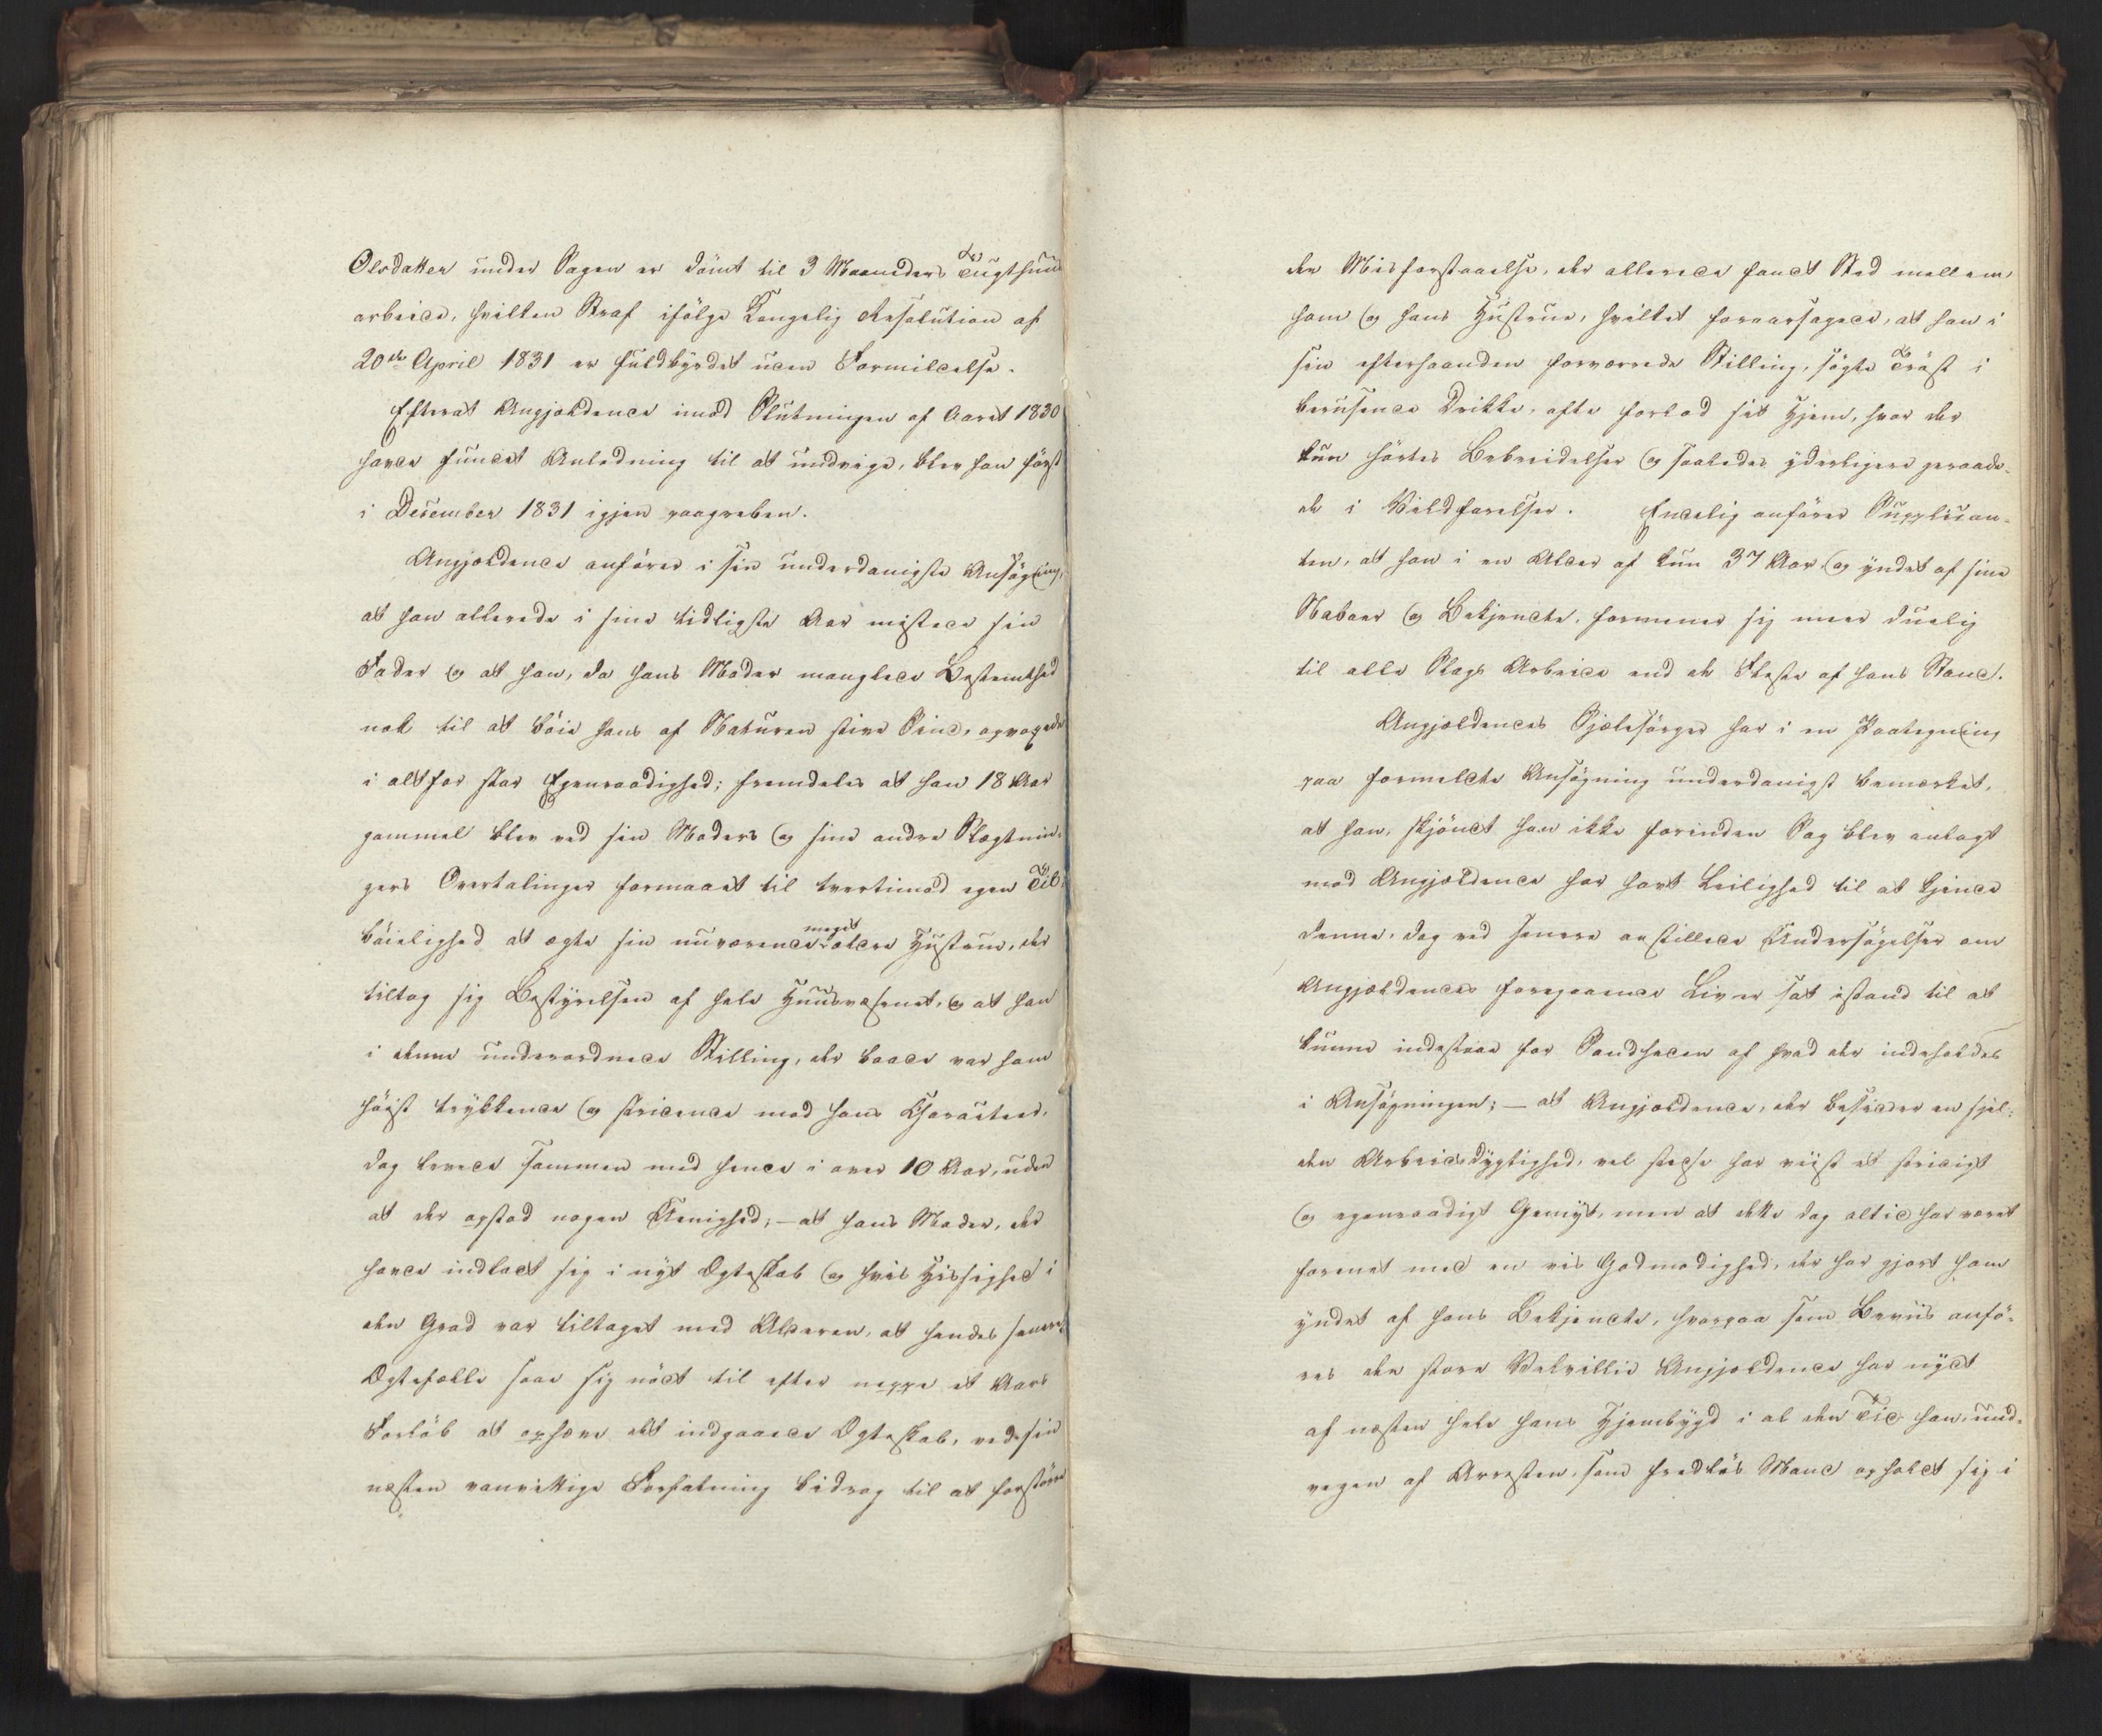 Olsdatter under Sagen er dömt til 3 Maaneders Tugthuus
arbeide, hvilken Straf ifölge Kongelig Resolution af
20de April 1831 er fuldbyrdet uden Formildelse.
Efterat Angjældende imod Slutningen af Aaret 1830
havde fundet Anledning til at undvige, blev han först
i December 1831 igjen paagreben.
Angjældende anförer i sin underdanigste Ansögning,
at han allerede i sine tidligste Aar mistede sin
Fader og at han, da hans Moder manglede Bestemthed
nok til at böie hans af Naturen stive Sind, opvoxede
i altfor stor Egenraadighed; fremdeles at han 18 Aar
gammel blev ved sin Moders og sine andre Slægtnin-
gers Overtalinger formaaet til tvertimod egen Til-
böielighed at ægte sin nuværende meget ældre Hustrue, der
tiltog sig Bestyrelsen af hele Huusvæsenet, og at han
i denne underordnede Stilling, der baade var ham
höist trykkende og stridende mod hans Charakteer,
dog levede sammen med hende i over 10 Aar, uden
at der opstod nogen Uenighed; – at hans Moder, der
havde indladt sig i nyt Ægteskab og hvis Hidsighed i
den Grad var tiltaget med Alderen, at hendes senere
Ægtefælle saae sig nödt til efter neppe et Aars
Forlöb at ophæve det indgaaede Ægteskab, ved sin
næsten vanvittige Forfatning bidrog til at forstörre
den Misforstaaelse, der allerede fandt Sted mellem
ham og hans Hustrue, hvilket foraarsagede, at han i
sin efterhaanden forværrede Stilling, sögte Tröst i
berusende Drikke, ofte forlod sit Hjem, hvor der
kun hörtes Bebreidelser og saaledes yderligere geraade-
de i Vildfarelser. Endelig anförer Supplican-
ten, at han i en Alder af kun 37 Aar, og yndet af sine
Naboer og Bekjendte, formener sig meer duelig
til alle Slags Arbeide end de Fleste af hans Stand.
Angjældendes Sjælesörger har i en Paategning
paa formeldte Ansögning underdanigst bemærket,
at han, skjöndt han ikke forinden Sag blev anlagt
mod Angjældende har havt Leilighed til at kjende
denne, dog ved senere anstillede Undersögelser om
Angjældendes foregaaende Liv er sat istand til at
kunne indestaae for Sandheden af hvad der indeholdes
i Ansögningen; – at Angjældende, der besidder en sjel-
den Arbeidsdygtighed, vel stedse har viist et stridigt
og egenraadigt Gemyt, men at dette dog altid har været
forenet med en vis Godmodighed, der har gjort ham
yndet af hans Bekjendte, hvorpaa som Beviis anfö-
res den store Velvillie Angjældende har nydt
af næsten hele hans Hjembygd i al den Tid han, und-
vegen af Arresten, som fredlös Mand opholdt sig i